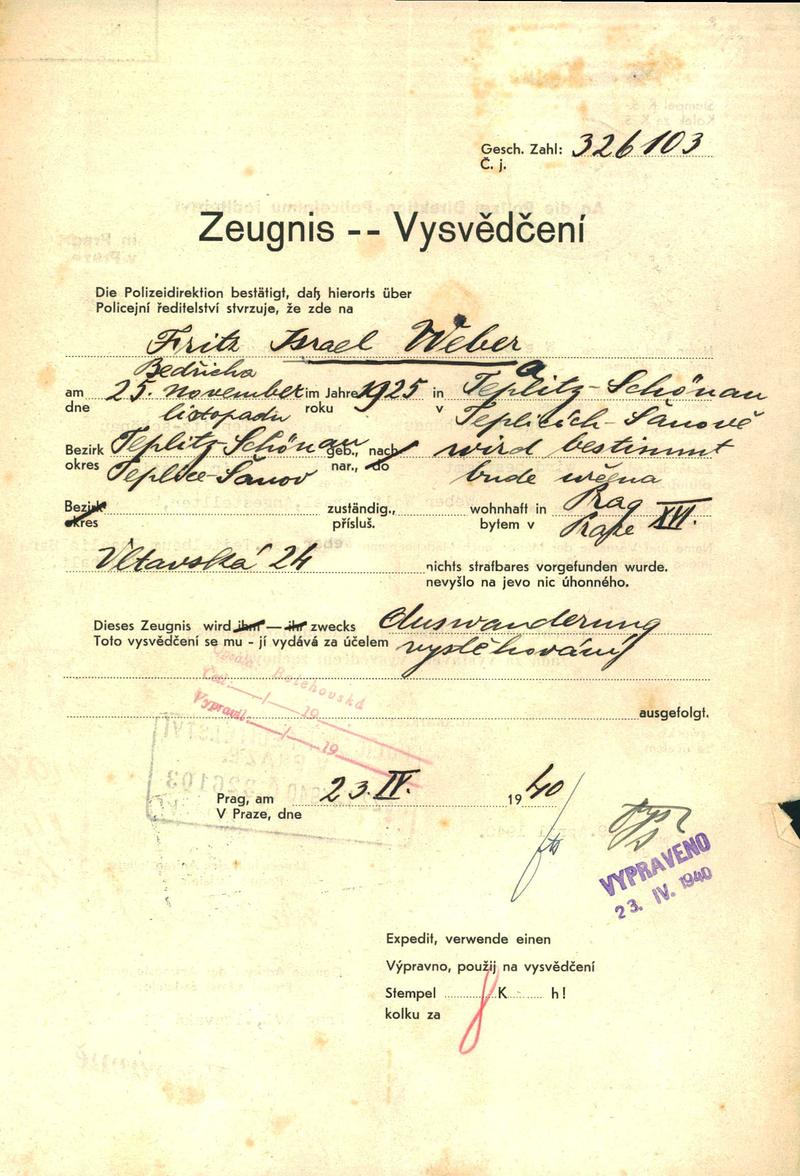 Gesch. Zahl: 326103
Č. j.
Zeugnis -- Vysvědčení
Die Polizeidirektion bestätigt, daß hierorts über
Policejní ředitelství stvrzuje, že zde na
Fritz Israel Weber
Bedřicha a
am 25. november im Jahre 1925 in Teplitz-Schönau
dne listopadu roku v Teplicích-Šanově
Bezirk Teplitz-Schönau geb., nach wird bestimmt
okres Teplice-Šanov nar., do bude určena
Bezirk zuständig., wohnhaft in Prag XVI.
okres přísluš. bytem v Praze
Vltavská 24 nichts strafbares vorgefunden wurde.
nevyšlo na jevo nic úhonného.
Dieses Zeugnis wird ihm — ihr zwecks Auswanderung
Toto vysvědčení se mu - jí vydává za účelem vystěhování
Bolehovská
Čet. / 19
Vypravil / 19
ausgefolgt.
326103
Prag, am 23. IV. 1940
V Praze, dne
VYPRAVENO
23. IV. 1940
Expedit, verwende einen
Výpravno, použij na vysvědčení
Stempel K h!
kolku za